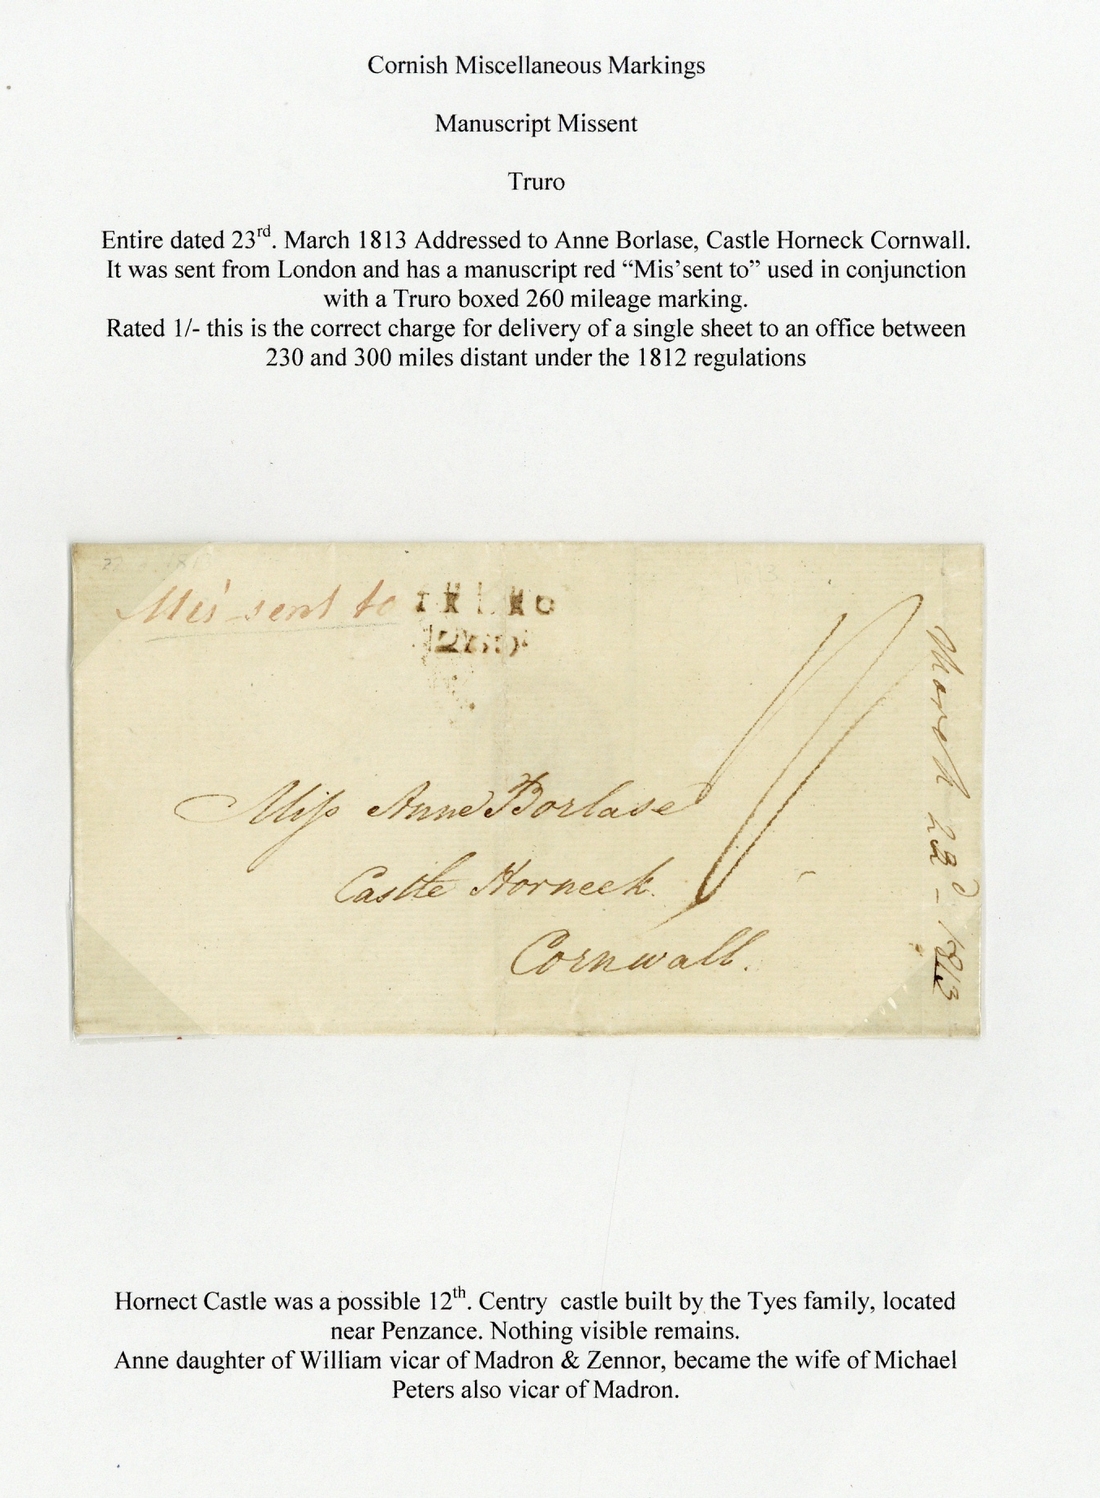 Cornish Miscellaneous Markings
Manuscript Missent
Truro
Entire dated 23rd. March 1813 Addressed to Anne Borlase, Castle Horneck Cornwall.
It was sent from London and has a manuscript red “Mis’sent to” used in conjunction
with a Truro boxed 260 mileage marking.
Rated 1/- this is the correct charge for delivery of a single sheet to an office between
230 and 300 miles distant under the 1812 regulations
Mis'sent to TRURO
260
Miss Anne Borlase
Castle Horneck.
Cornwall.
March 23d - 1813
Hornect Castle was a possible 12th. Centry castle built by the Tyes family, located
near Penzance. Nothing visible remains.
Anne daughter of William vicar of Madron & Zennor, became the wife of Michael
Peters also vicar of Madron.